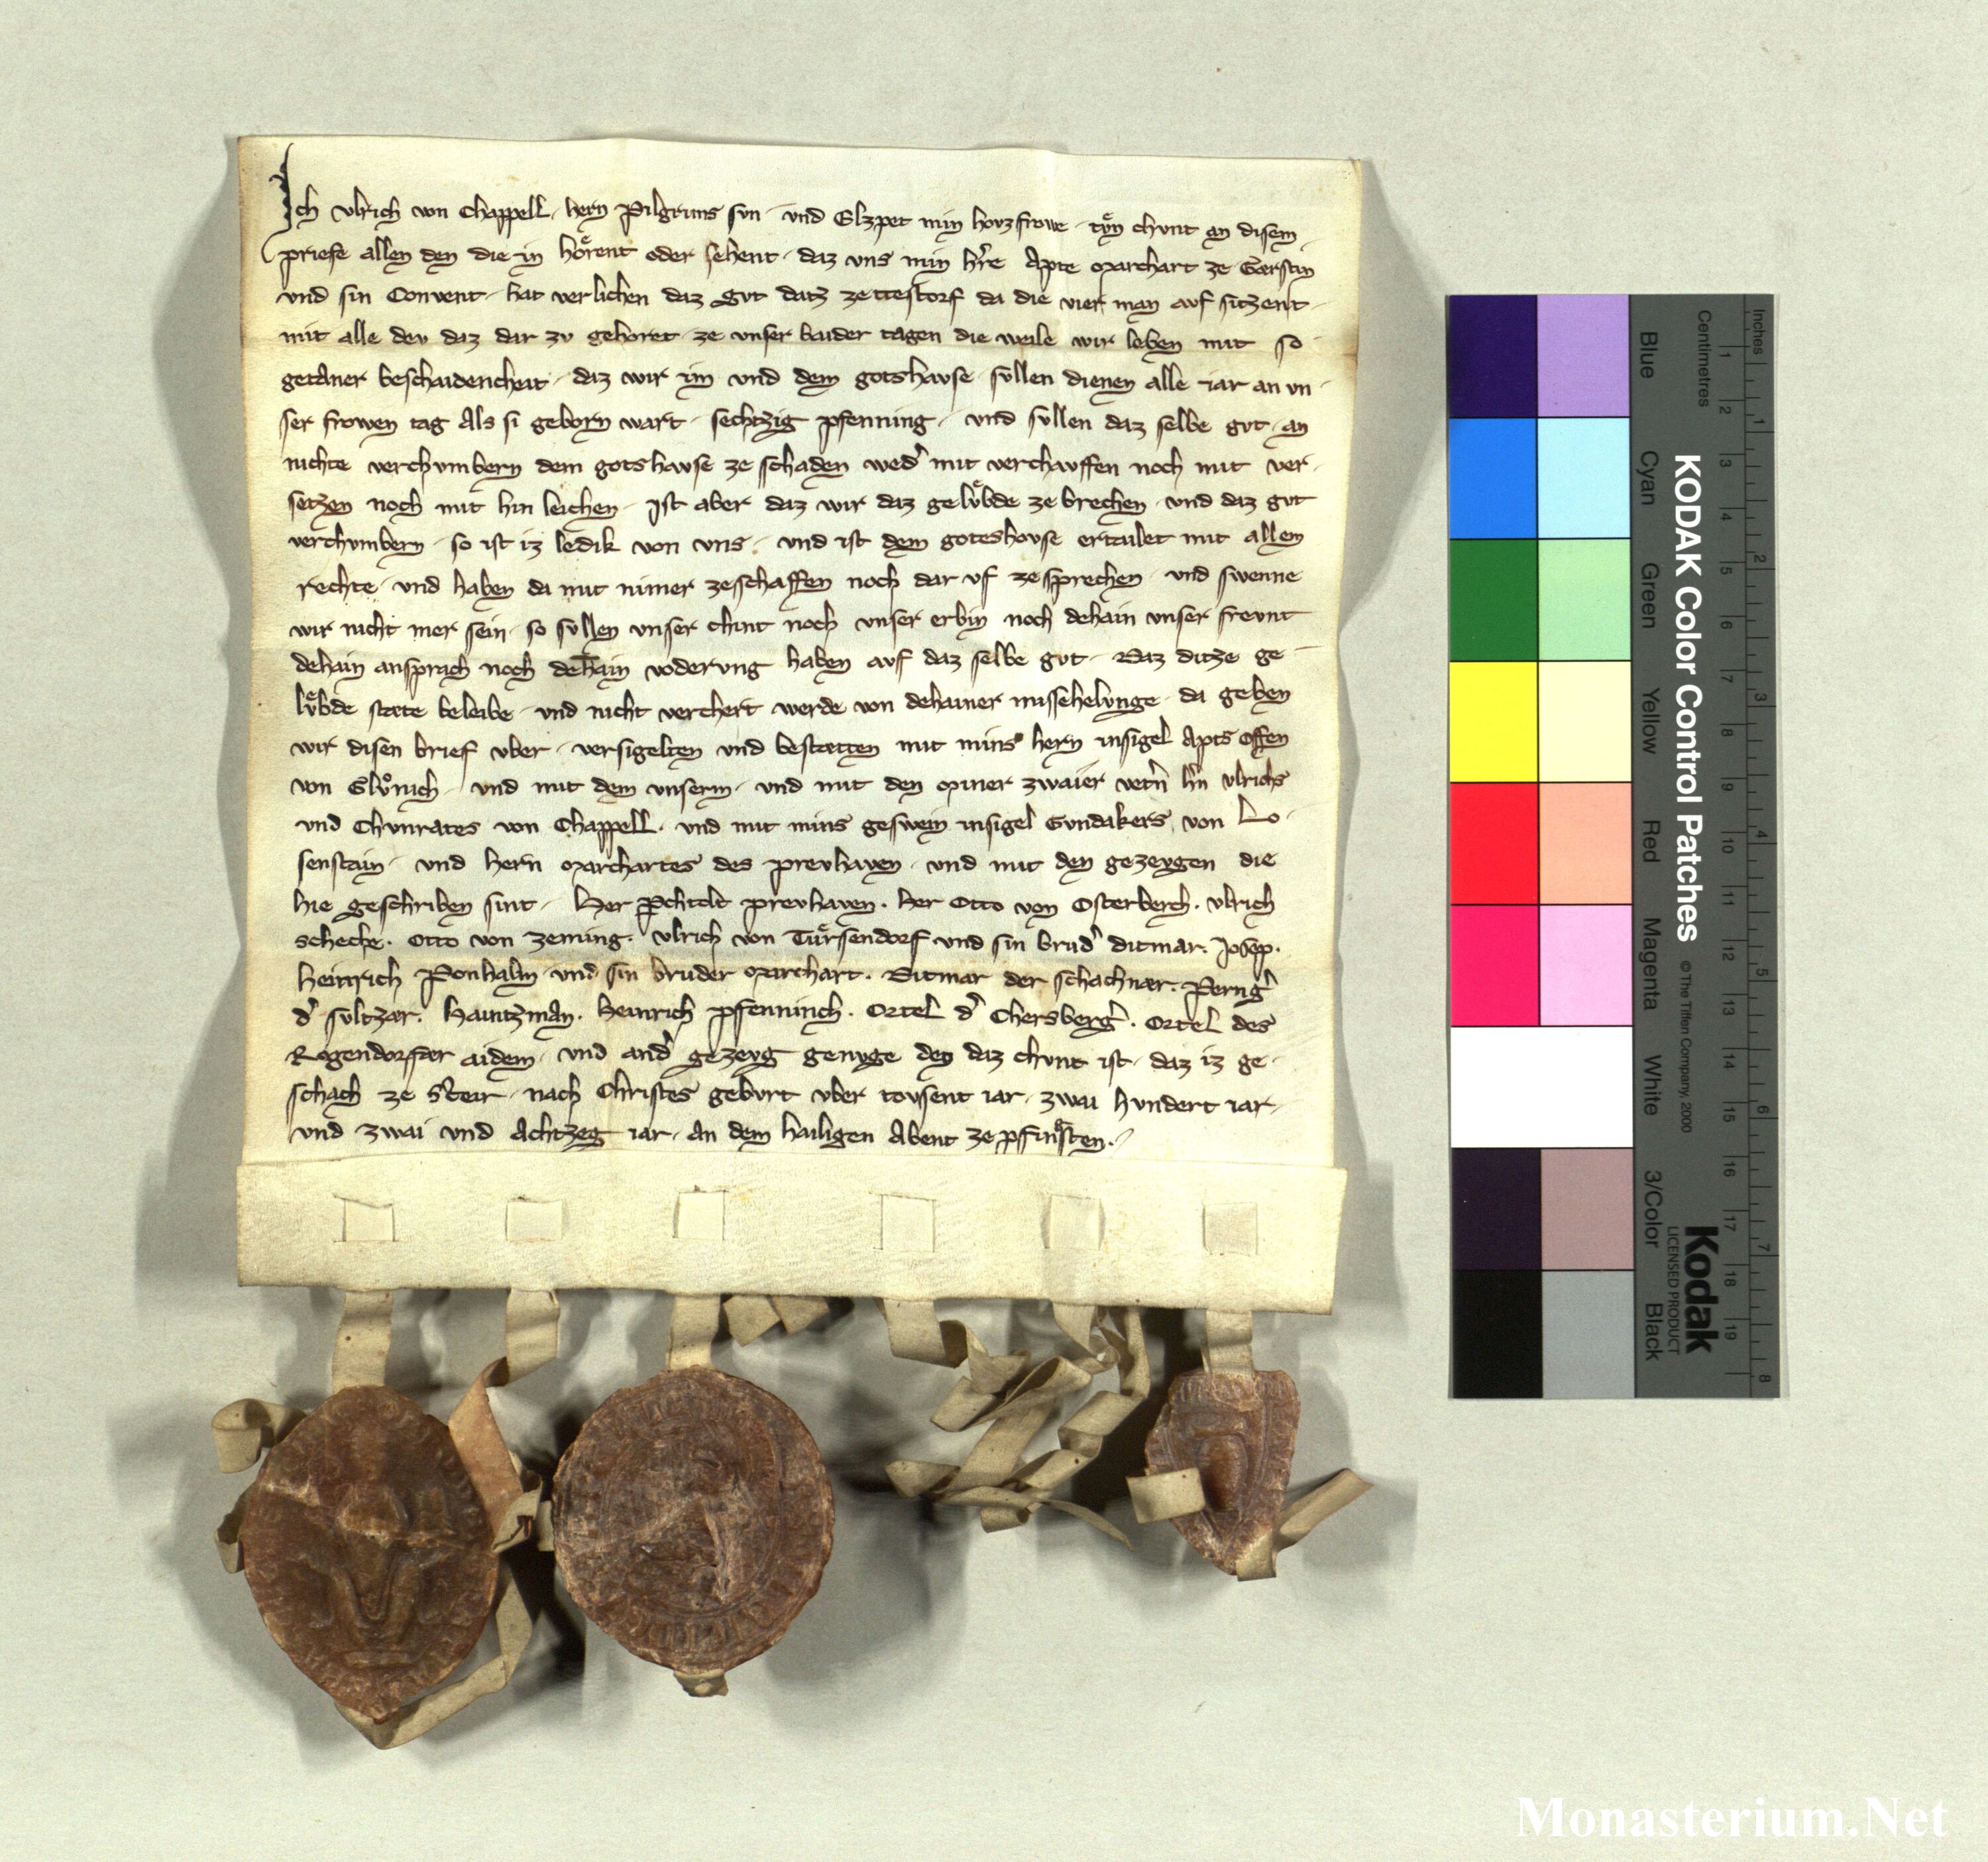 Ich vlrich von Chappell. hern Pilgrims svn. vnd Elzpet min hovzfrowe. tvͤn chvnt an disem
priefe allen den die in hoͤrent oder sehent. daz vns min hr̄e Apte Marchart ze Gærstin
vnd sin Convent. hat verlichen daz gvt datz zettestorf da die vier man avf sitzent.
mit alle dev daz dar zv gehoret. ze vnser baider tagen die weile wir leben mit so
getaner beschaidencheit. daz wir im vnd dem gotshavse svllen dienen alle iar an vn-
ser frowen tag Als si geborn wart. sechtzig pfenning. vnd svllen daz selbe gvt. an
nichte verchvmbern dem gotshavse ze schaden wed' mit verchavffen noch mit ver-
setzen noch mit hin leichen. Ist aber daz wir daz gelvͤbde ze brechen. vnd daz gvt
verchvmbern. so ist iz ledik von vns. vnd ist dem goteshovse ertailet mit allem
rechte. vnd haben da mit nimer zeschaffen noch dar vf zesprechen. vnd swenne
wir nicht mer sein. so svllen vnser chint noch vnser erbin noch dehain vnser frevnt
dehain ansprach noch dehain vodervng haben avf daz selbe gvt. Daz ditze ge-
lvͤbde stæte beleibe. vnd nicht verchert werde von dehainer missehelvnge. da geben
wir disen brief vber. versigelten vnd bestætten mit mins hern insigel Apts Offen
von Glvͤnich. vnd mit dem vnserm. vnd mit den miner zwaier vetn̄ hn̄ vlrichs
vnd Chvnrates von Chappell. vnd mit mins geswein insigel Gvndakers von Lo-
senstain. vnd hern Marchartes des prevhaven. vnd mit den gezevgen die
hie geschriben sint. Her Pchtolt prevhaven. her Otto von Osterberch. vlrich
schecke. Otto von zeming. vlrich von Tuͤrsendorf vnd sin brud' ditmar. Josep.
heinrich Ponhalm vnd sin bruder Marchart. Ditmar der schachnær. Perng'
d' svltzær. haintzman. heinrich pfenninch. Ortel d' Chersberg'. Ortel des
Rogendorffær aidem. vnd and' gezevg genvge den daz chvnt ist. daz iz ge-
schach ze Steir. nach Christes gebvrt vber tovsent iar. zwai hvndert iar.
vnd zwai vnd Achtzeg iar. an dem hailigen Abent ze pfinsten.
KODAK Color Control Patches
© The Tiffen Company, 2000
Kodak
LICENSED PRODUCT
Inches
Centimetres
Blue
Cyan
Green
Yellow
Red
Magenta
White
3/Color
Black
1 2 3 4 5 6 7 8 9 10 11 12 13 14 15 16 17 18 19
1 2 3 4 5 6 7 8
Monasterium.Net